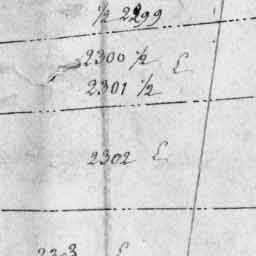 1/2 2299
2300 1/2 E
2301 1/2
2302 E
2303 E